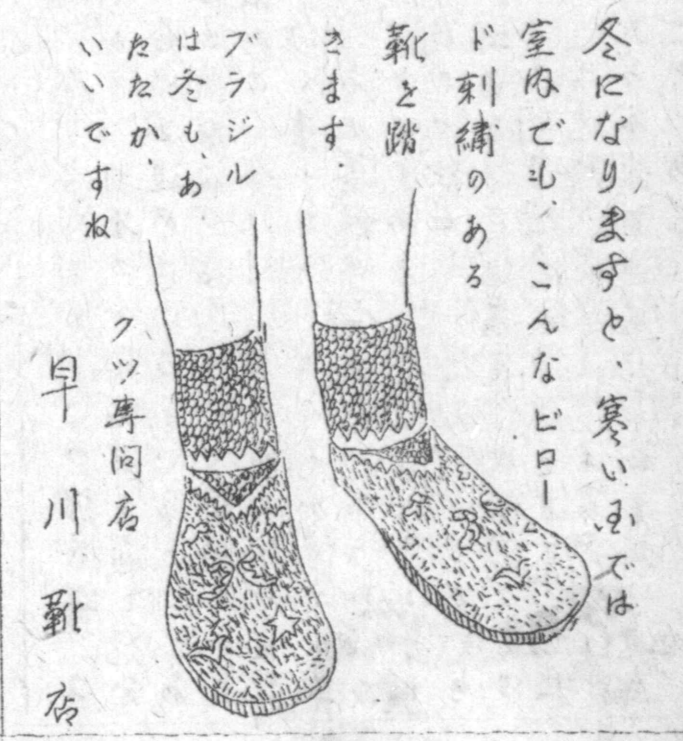 冬になりますと、寒い国では
室内でも、こんなビロー
ド刺繍のある
靴を踏
きます.
ブラジル
は冬も、あ
たたか、
いいですね
クツ専问店
早川靴店